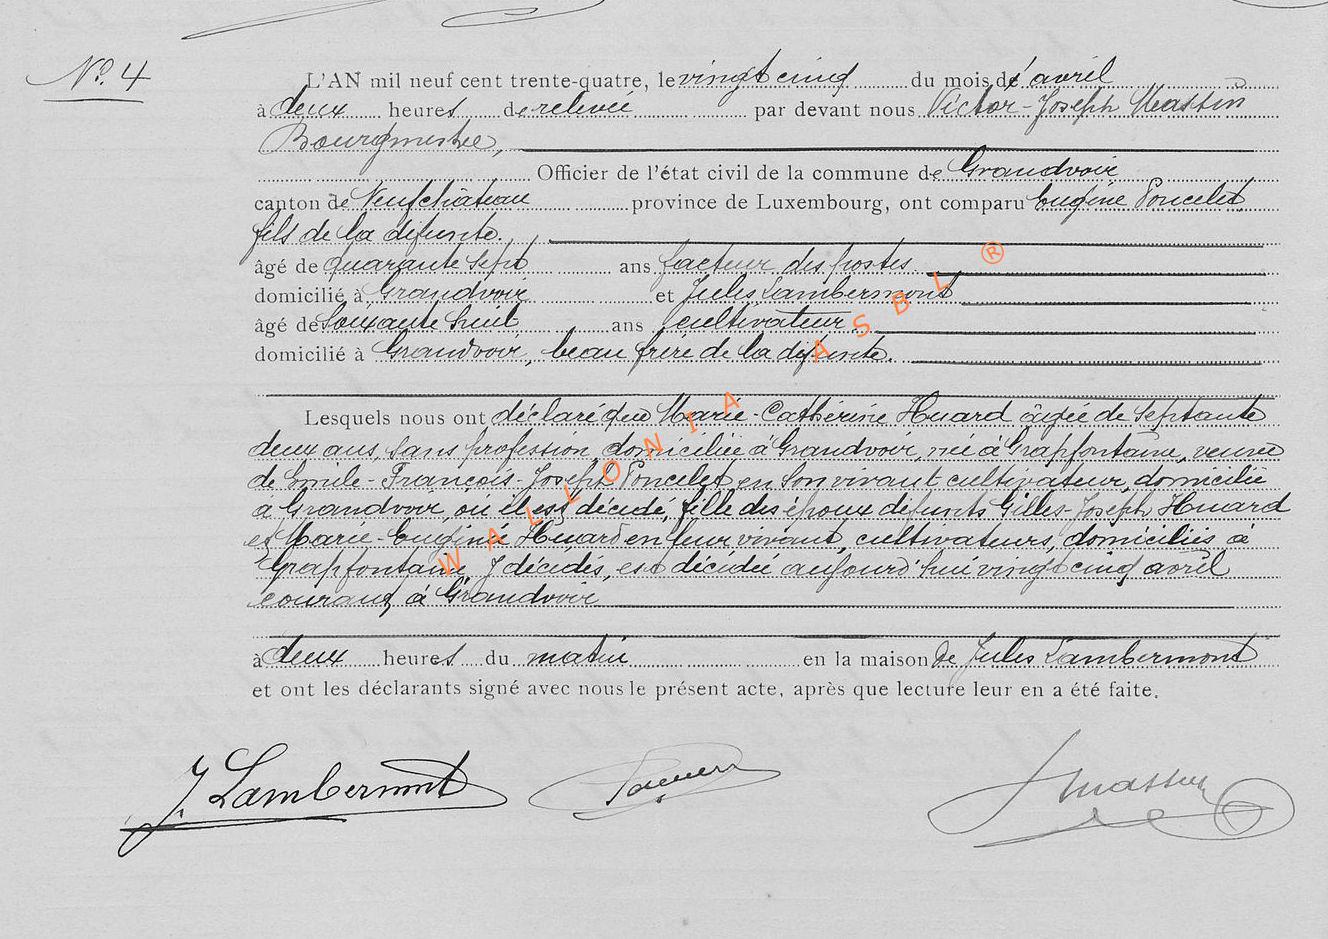 No. 4
L'AN mil neuf cent trente-quatre, le vingt cinq du mois d'avril
à deux heures de relevée par devant nous Victor-Joseph Massin
Bourgmestre,
Officier de l'état civil de la commune de Grandvoir
canton de Neufchâteau province de Luxembourg, ont comparu Eugène Poncelet,
fils de la défunte,
âgé de quarante sept ans facteur des postes
domicilié à Grandvoir et Jules Lambermont
âgé de Soixante huit ans cultivateur
domicilié à Grandvoir, beau frère de la défunte.
Lesquels nous ont déclaré que Marie-Catherine Huard âgée de Septante
deux ans, sans profession, domiciliée à Grandvoir, née à Grapfontaine, veuve
de Emile-François-Joseph Poncelet en son vivant cultivateur, domicilié
à Grandvoir, où il est décédé, fille des époux défunts Gilles-Joseph Huard
et Marie-Eugénie Huard en leur vivant, cultivateurs, domiciliés à
Grapfontaine, y décédés, est décédée aujourd'hui vingt cinq avril
courant, à Grandvoir
à deux heures du matin en la maison de Jules Lambermont
et ont les déclarants signé avec nous le présent acte, après que lecture leur en a été faite.
J. Lambermont
Massin
WALLONIA ASBL ®